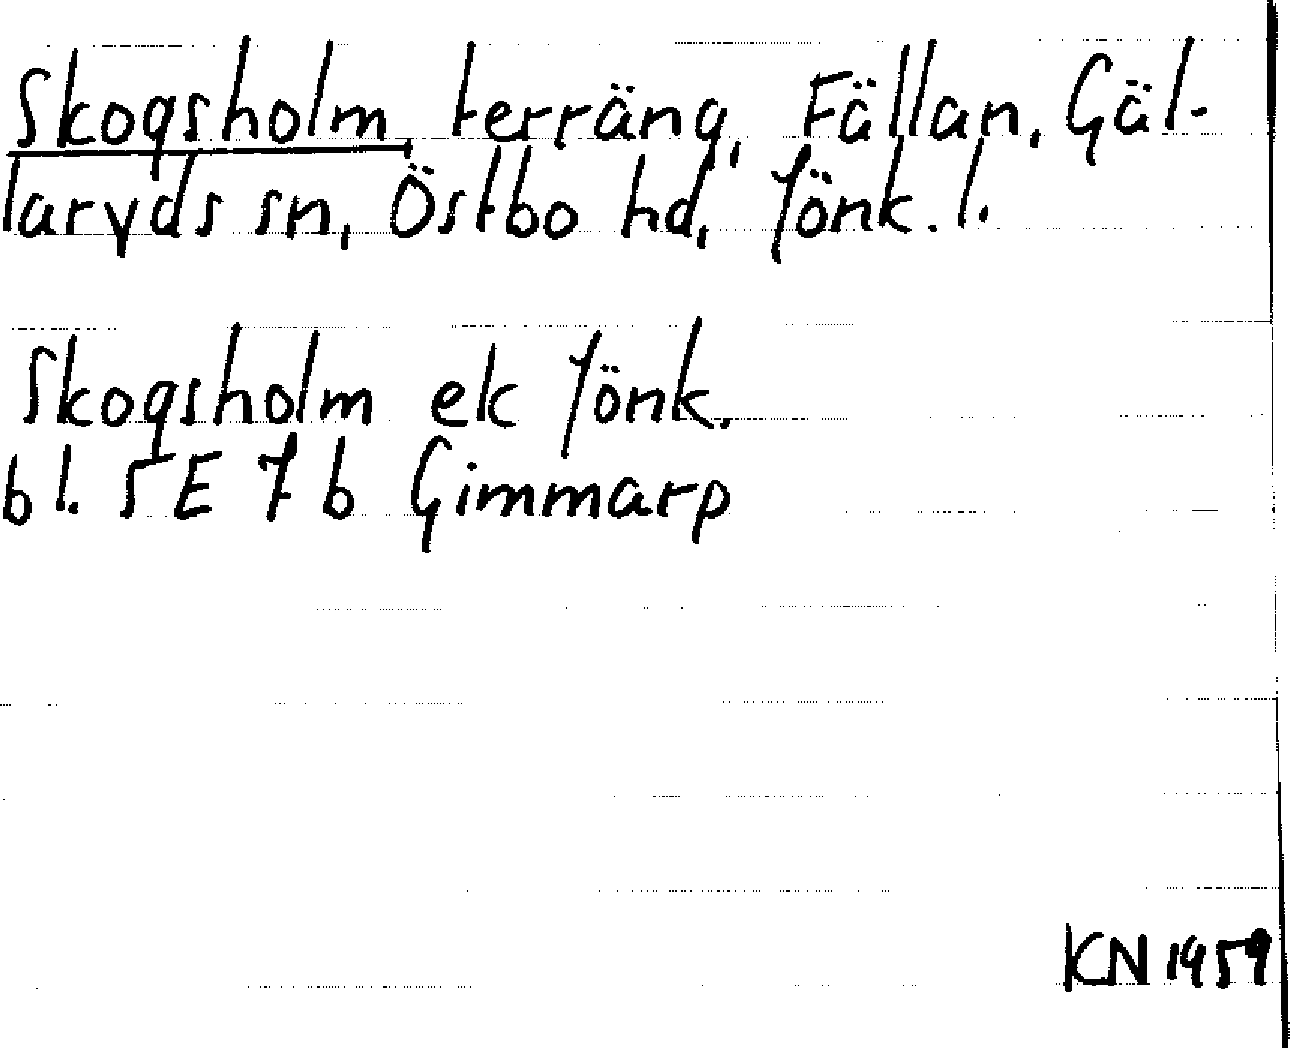 Skogsholm, terräng, Fällan, Gäl-
laryds sn, Östbo hd, Jönk. l.
Skogsholm ek Jönk.
bl. 5E 7b Gimmarp
KN 1959